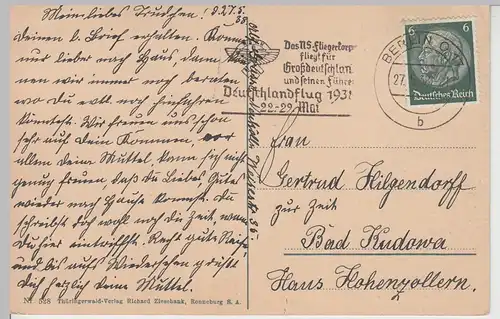 Mein liebes Trudchen! d. 27.5.38
Deinen l. Brief erhalten. Komme
nur lieber nach Haus, dann kön-
nen wir immer noch beraten
wo Du evtl. noch hinfahren
könntest. Wir freuen uns schon
sehr auf Dein Kommen, vor
allem Deine Muttel kann sich nicht
genug freuen, daß Du Gutes
wieder nach Hause kommst. Du
schreibst doch wohl noch die Zeit wann
Du hier eintriffst. Recht gute Reise
und bis auf Wiedersehen grüßt
Dich herzlich Deine Muttel.
Das NS-Fliegerkorps
fliegt für
Großdeutschlan
und seinen Führer
Deutschlandflug 193
22.-29. Mai
BERLIN
27.
b
6
6
Deutsches Reich
Frau
Gertrud Hilgendorf
zur Zeit
Bad Kudowa
Haus Hohenzollern.
Nr. 528 Thüringerwald-Verlag Richard Zieschank, Ronneburg S. A.